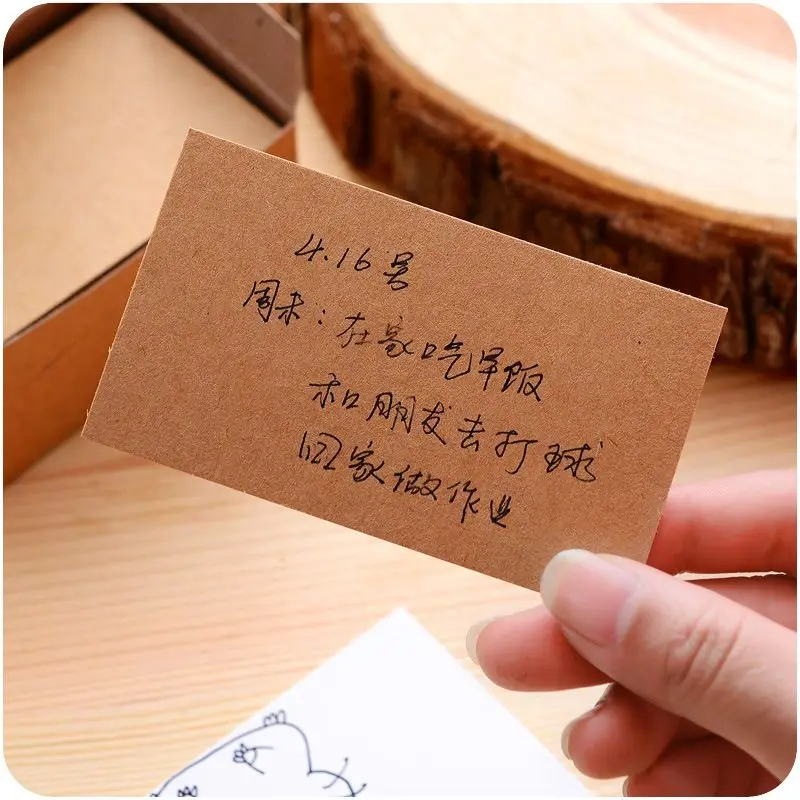 4.16号
周末：在家吃早饭
和朋友去打球
回家做作业